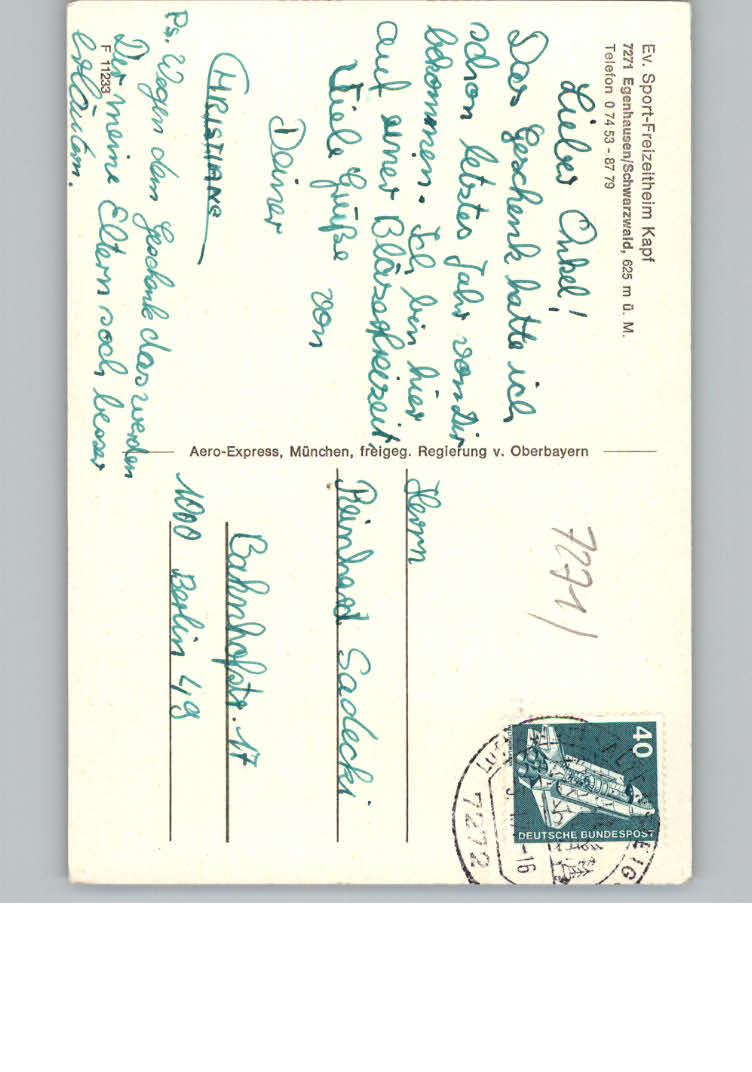 Ev. Sport-Freizeitheim Kapf
7271 Egenhausen/Schwarzwald, 625 m ü. M.
Telefon 0 74 53 - 87 79
Lieber Onkel!
Das Geschenk hatte ich
schon letztes Jahr von Dir
bekommen. Ich bin hier
auf einer Bläserfreizeit,
Viele Grüße von
Deiner
CHRISTIANE
Ps. Wegen dem Geschenk das werden
Dir meine Eltern noch besser
erläutern.
F 11233
Aero-Express, München, freigeg. Regierung v. Oberbayern
7271/
Herrn
Reinhard Sadecki
Bahnhofstr. 17
1000 Berlin 49
40
DEUTSCHE BUNDESPOST
7272
-16